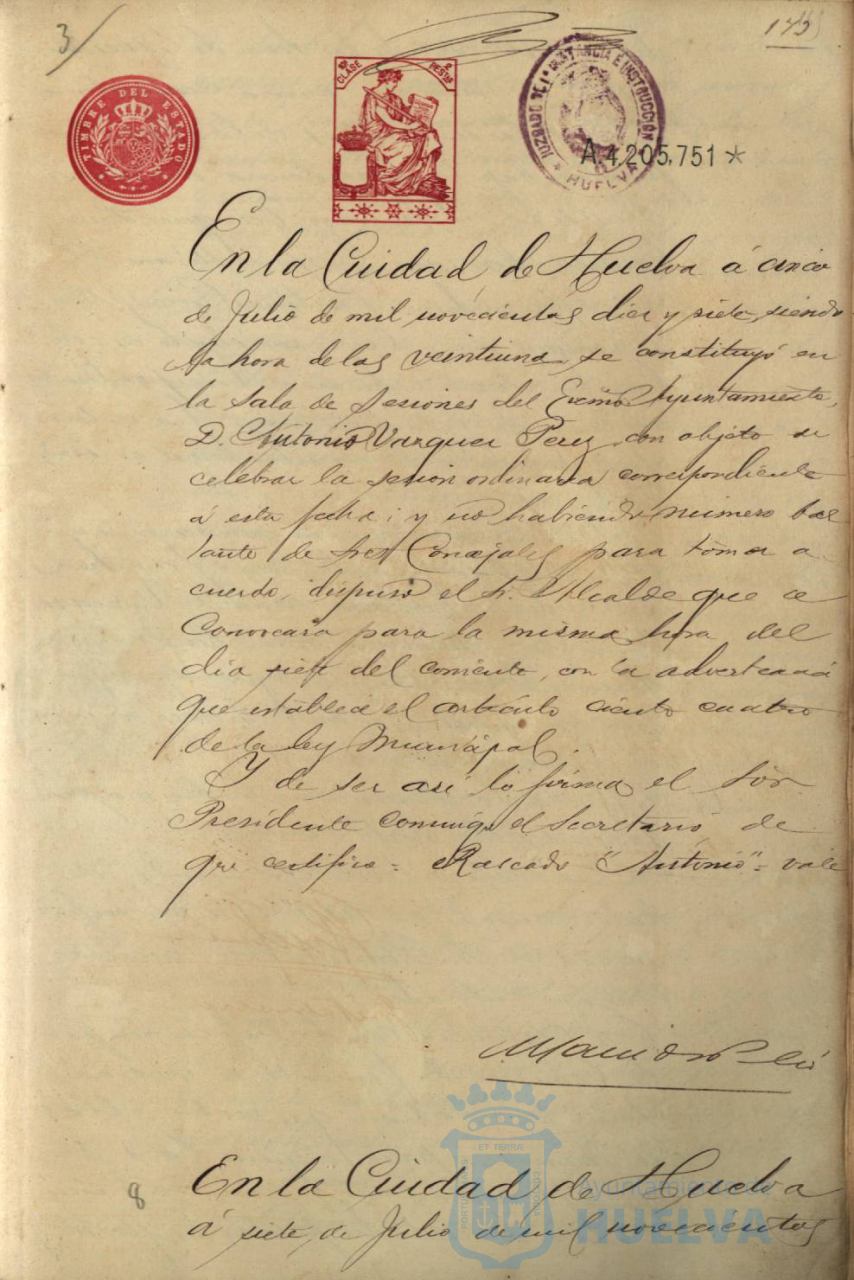 3
145
TIMBRE DEL ESTADO
10ª CLASE
PESETA
JUZGADO DE 1ª INSTANCIA E INSTRUCCIÓN
HUELVA
A.4.205,751*
En la Ciudad de Huelva á cinco
de Julio de mil novecientos diez y siete, siendo
la hora de las veintiuna, se constituyó en
la Sala de Sesiones del Excmo Ayuntamiento,
D. Antonio Vazquez Perez, con objeto de
celebrar la sesion ordinaria correspondiente
á esta fecha; y no habiendo número bas
tante de Sres Concejales para tomar a
cuerdo, dispuso el Sr. Alcalde que se
convocara para la misma hora del
dia siete del corriente, con la advertencia
que establece el artículo ciento cuatro
de la ley Municipal.
Y de ser asi lo firma el Sor.
Presidente conmigo el Secretario, de
que certifico = Rascado "Antonio" = vale
8
En la Ciudad de Huelva
á siete, de Julio de mil novecientos
ET TERRA
Ayuntamiento
HUELVA